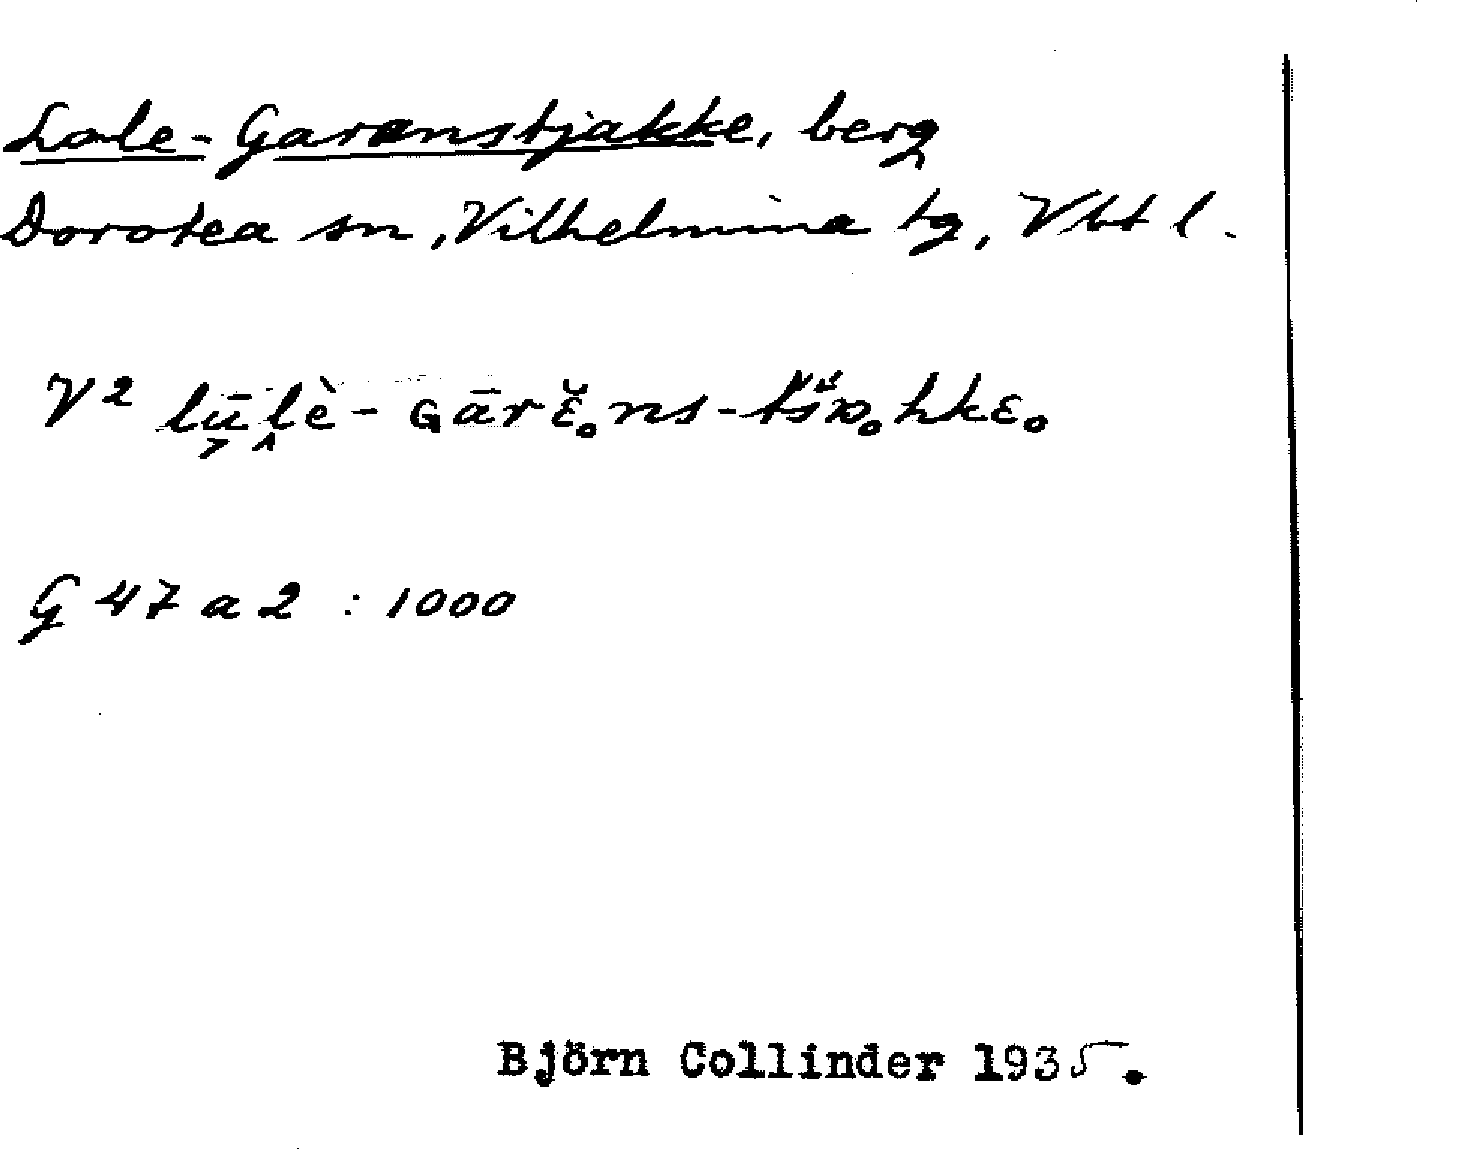 Lole-Garanstjakke, berg
Dorotea sn, Vilhelmina tg, Vbt l.
V2
G 47 a 2 : 1000
Björn Collinder 1935.